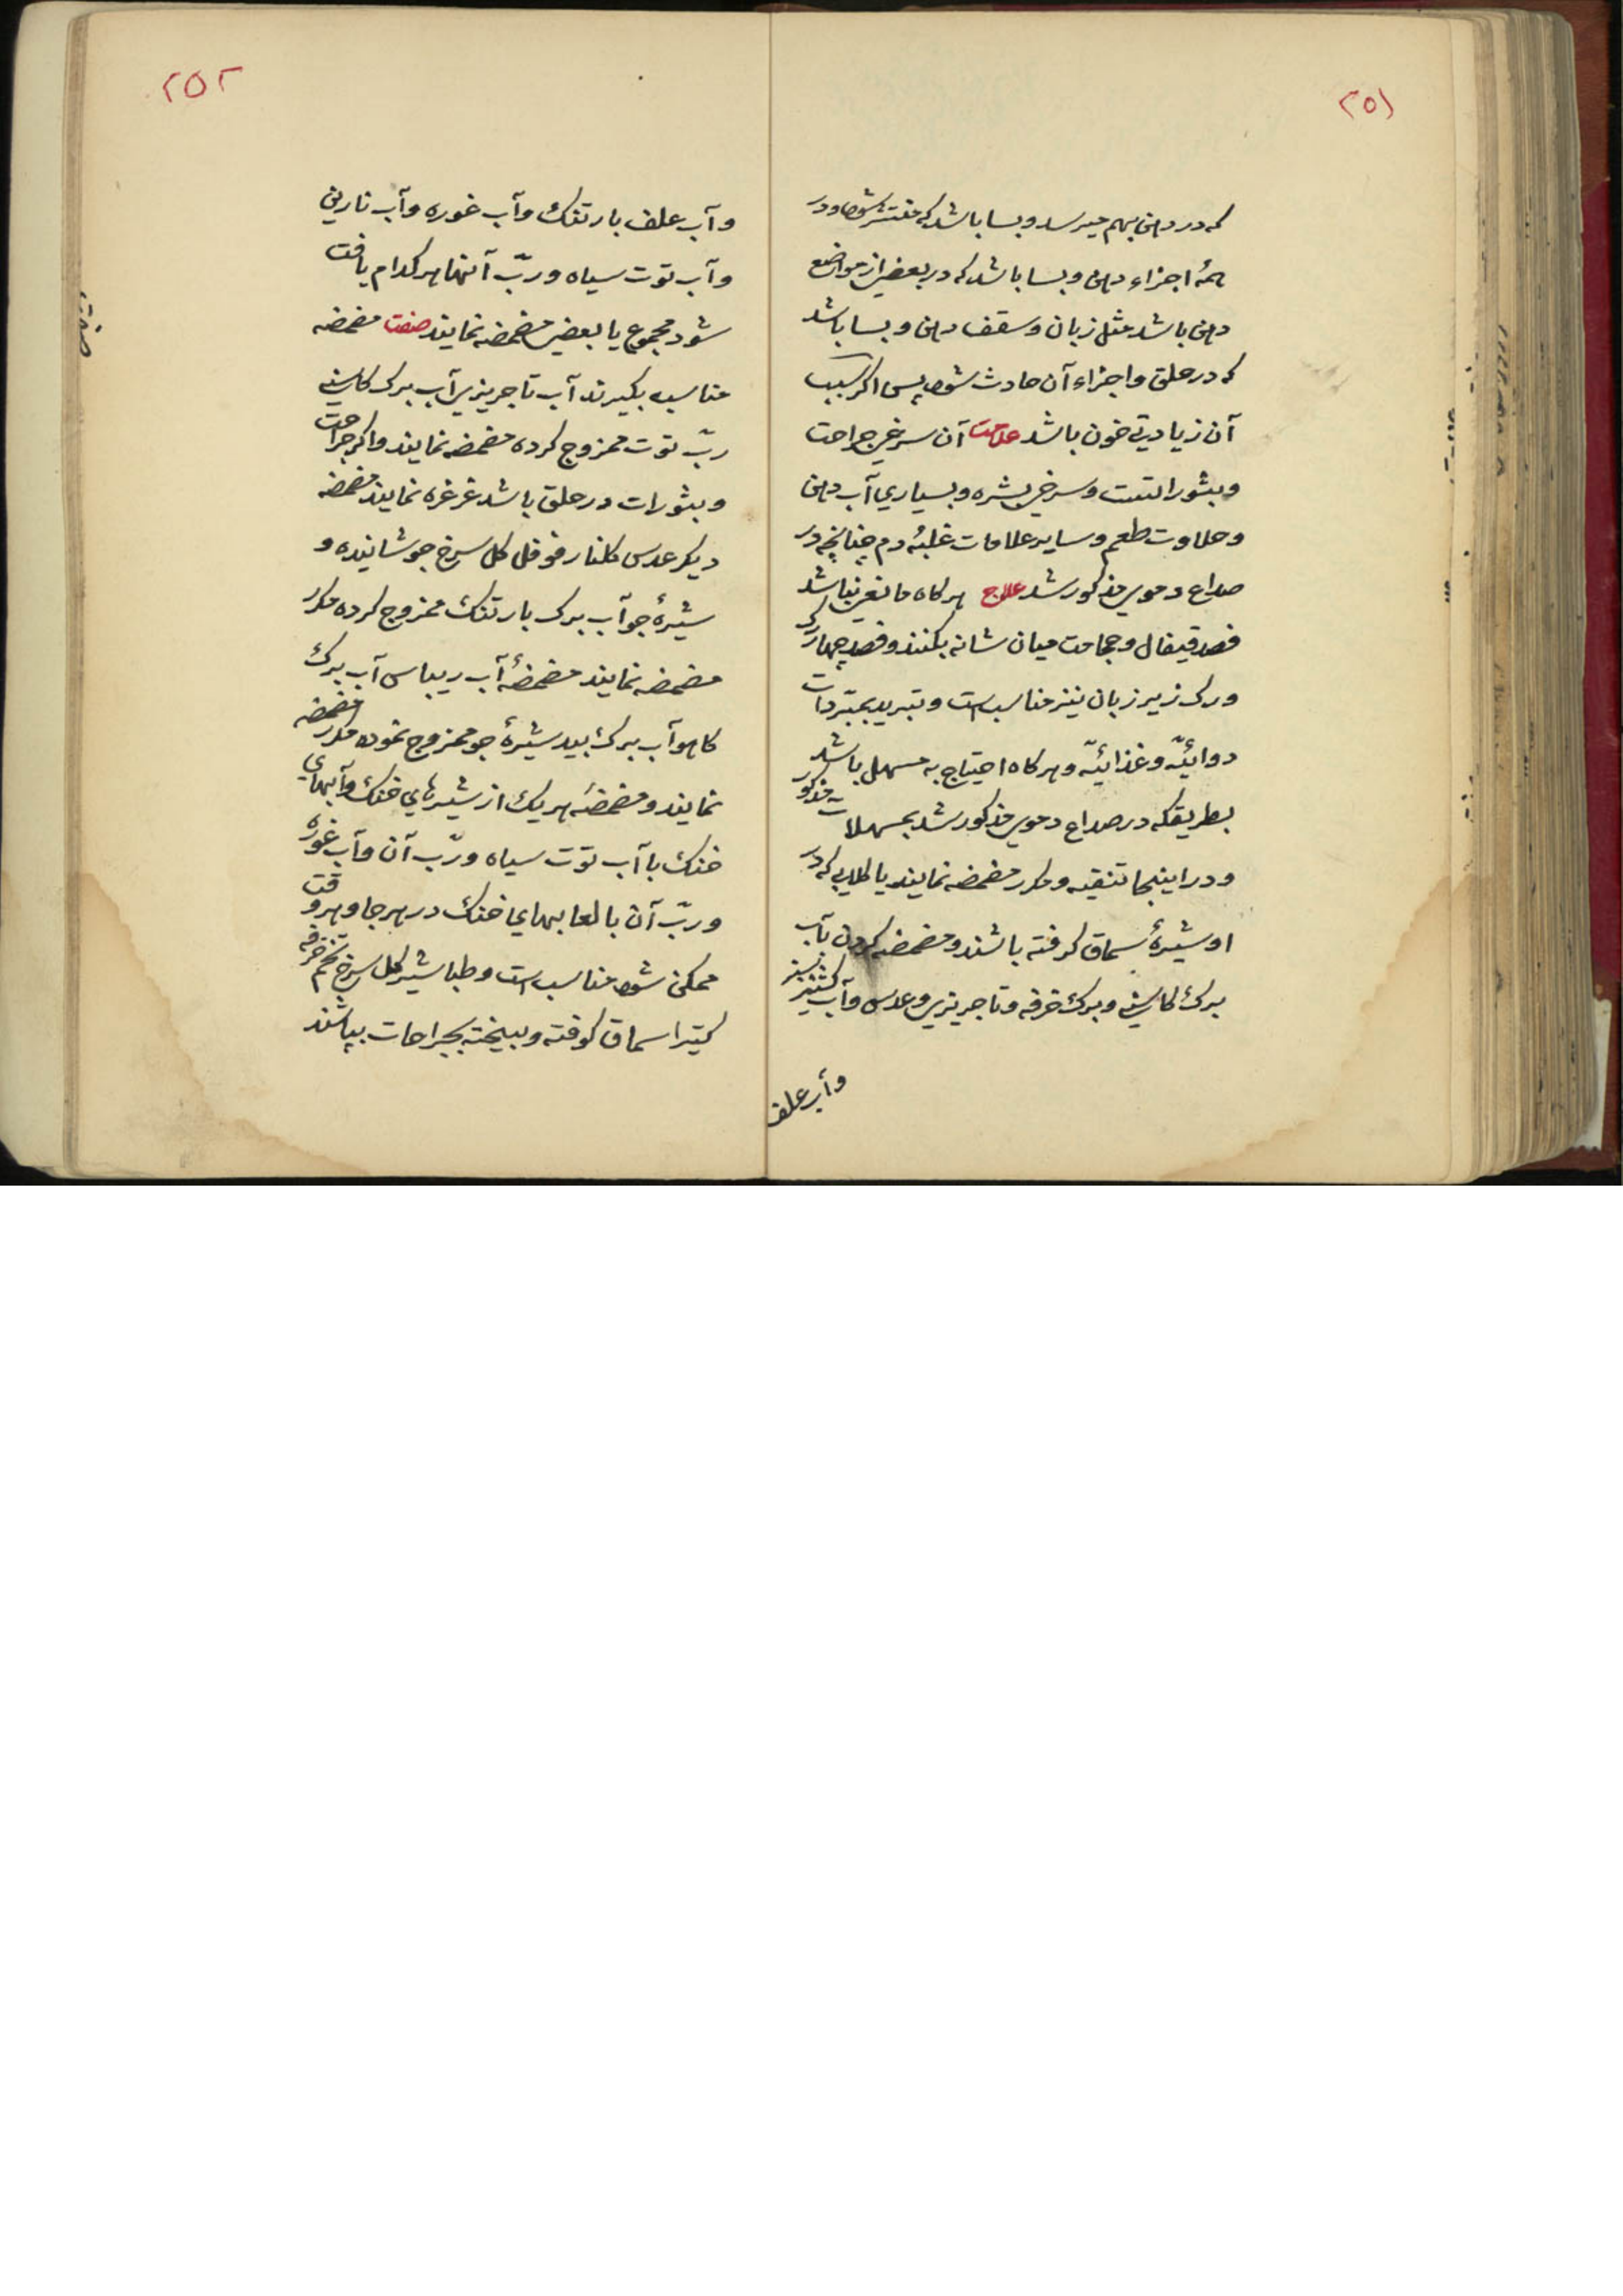 ٢٥١
که در دهن بهم میرسد و بسا باشد که منتشر شود و در
همهٔ اجزاء دهن و بسا باشد که در بعضی از مواضع
دهن باشد مثل زبان و سقف دهن و بسا باشد
که در حلق و اجزاء آن حادث شود پس اکر سبب
آن زیادتی خون باشد علامت آن سرخی جراحت
و بثور التست و سرخی بشره و بسیاری آب دهن
و حلاوت طعم و سایر علامات غلبهٔ دم چنانچه در
صداع دموی مذکور شد علاج هر کاه مانعی نباشد
فصد قیفال و حجامت میان شانه بکنند و فصد چهار رک
و رک زیر زبان نیز مناسب است و تبرید بمبرّدات
دوائیّه و غذائیّه و هر کاه احتیاج به مسهل باشد
بطریقکه در صداع دموی مذکور شد بمسهلات مذکور
و در اینجا تنقیه و مکرر مضمضه نمایند با کلابی که در
او شیرهٔ سماق کرفته باشند و مضمضه کردن بآب
برک کاسنی و برک خرفه و تاجریزی و عدس و آب کشنیز سبز
وآب علف
٢٥٢
و آب علف بارتنک و آب غوره و آب نارین
و آب توت سیاه و ربّ آنها هر کدام یافت
شود مجموع یا بعضی مضمضه نمایند صفت مضمضه
مناسبه بکیرند آب تاجریزی آب برک کاسنی
ربّ توت ممزوج کرده مضمضه نمایند و اکر جراحت
و بثورات در حلق باشد غرغره نمایند مضمضه
دیکر عدس کلنار فوفل کل سرخ جوشانیده و
شیرهٔ جو آب برک بارتنک ممزوج کرده مکرر
مضمضه نمایند مضمضهٔ آب ریباس آب برک
کاهو آب برک بید شیرهٔ جو ممزوج نموده مکرر مضمضه
نمایند و مضمضهٔ هر یک از شیرهای خنک و آبهای
خنک با آب توت سیاه و ربّ آن و آب غوره
و ربّ آن با لعابهای خنک در هر جا و هر وقت
ممکن شود مناسب است و طباشیر کل سرخ تخم خرفه
کتیرا سماق کوفته و بیخته بجراحات بپاشند